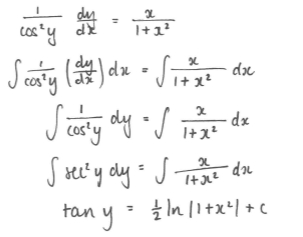 1/cos²y dy/dx = x/(1+x²)
∫ 1/cos²y (dy/dx) dx = ∫ x/(1+x²) dx
∫ 1/cos²y dy = ∫ x/(1+x²) dx
∫ sec²y dy = ∫ x/(1+x²) dx
tan y = ½ ln |1+x²| + c